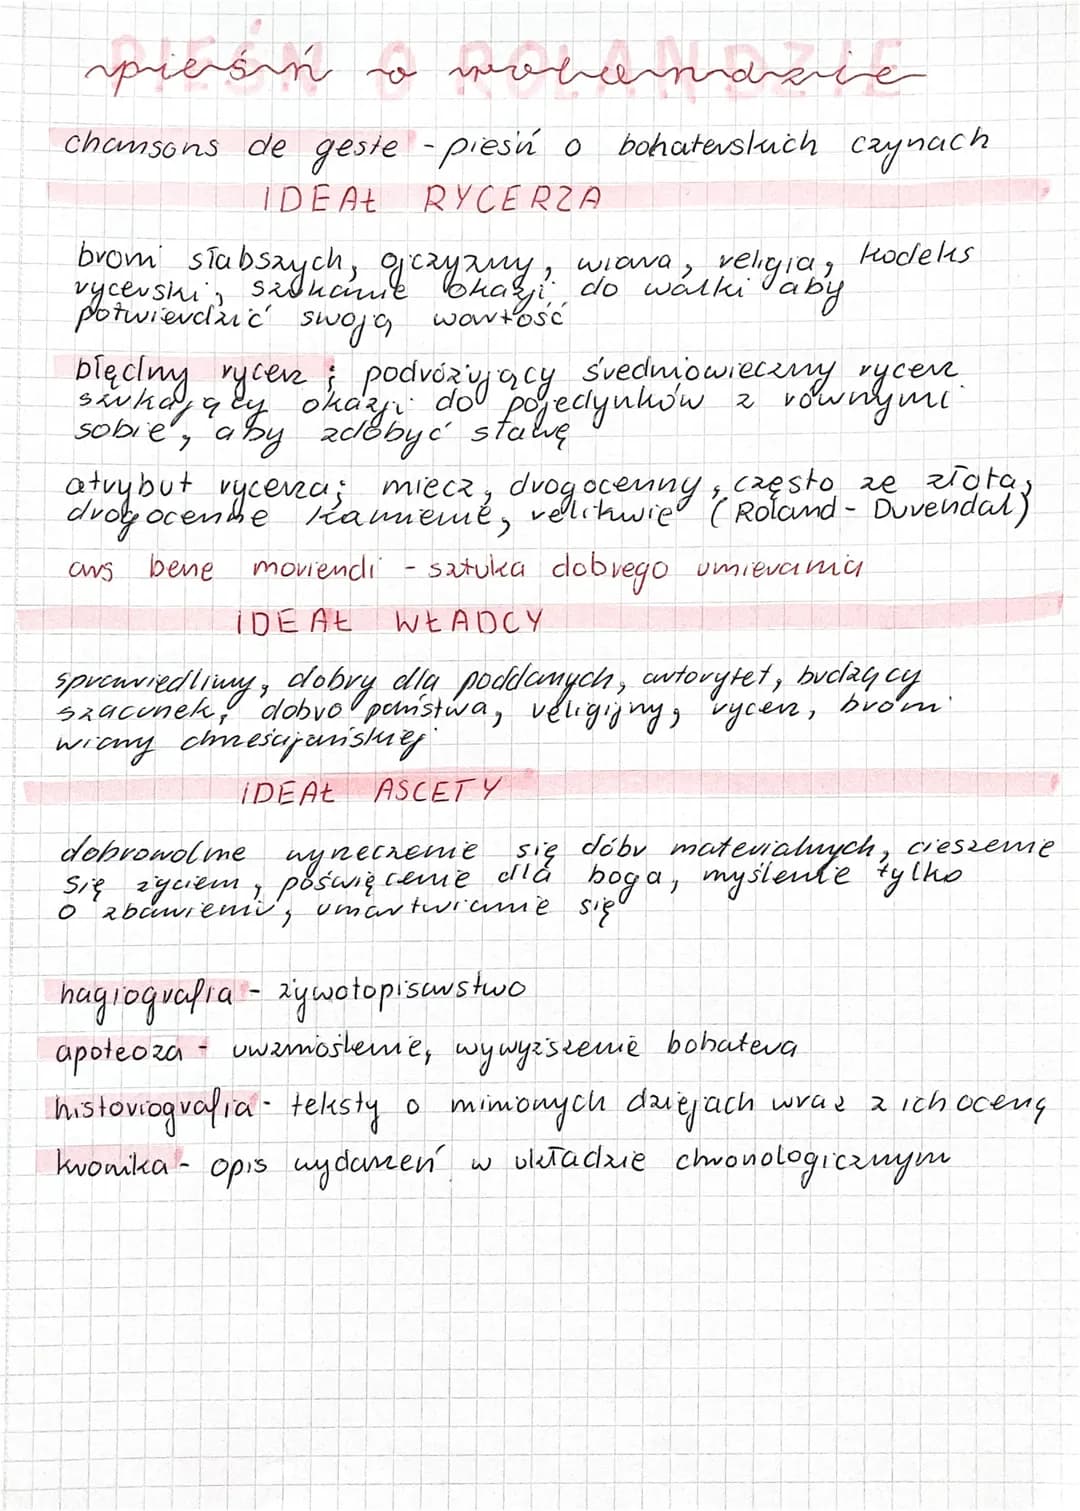 PIEŚŃ O ROLANDZIE
pieśń o rolandzie
chansons de geste - pieśń o bohaterskich czynach
IDEAŁ RYCERZA
broni słabszych, ojczyzny, wiara, religia, kodeks
rycerski, szukanie okazji do walki aby
potwierdzić swoją wartość
błędny rycerz ; podróżujący średniowieczny rycerz
szukający okazji do pojedynków z równymi
sobie, aby zdobyć sławę
atrybut rycerza; miecz, drogocenny, często ze złota,
drogocenne kamienie, relikwie (Roland - Durendal)
ars bene moriendi - sztuka dobrego umierania
IDEAŁ WŁADCY
sprawiedliwy, dobry dla poddanych, autorytet, budzący
szacunek, dobro państwa, religijny, rycerz, broni
wiary chrześcijańskiej
IDEAŁ ASCETY
dobrowolne wyrzeczenie się dóbr materialnych, cieszenie
się życiem, poświęcenie dla boga, myślenie tylko
o zbawieniu, umartwianie się
hagiografia - żywotopisarstwo
apoteoza - uwznioślenie, wywyższenie bohatera
historiografia - teksty o minionych dziejach wraz z ich oceną
kronika - opis wydarzeń w układzie chronologicznym